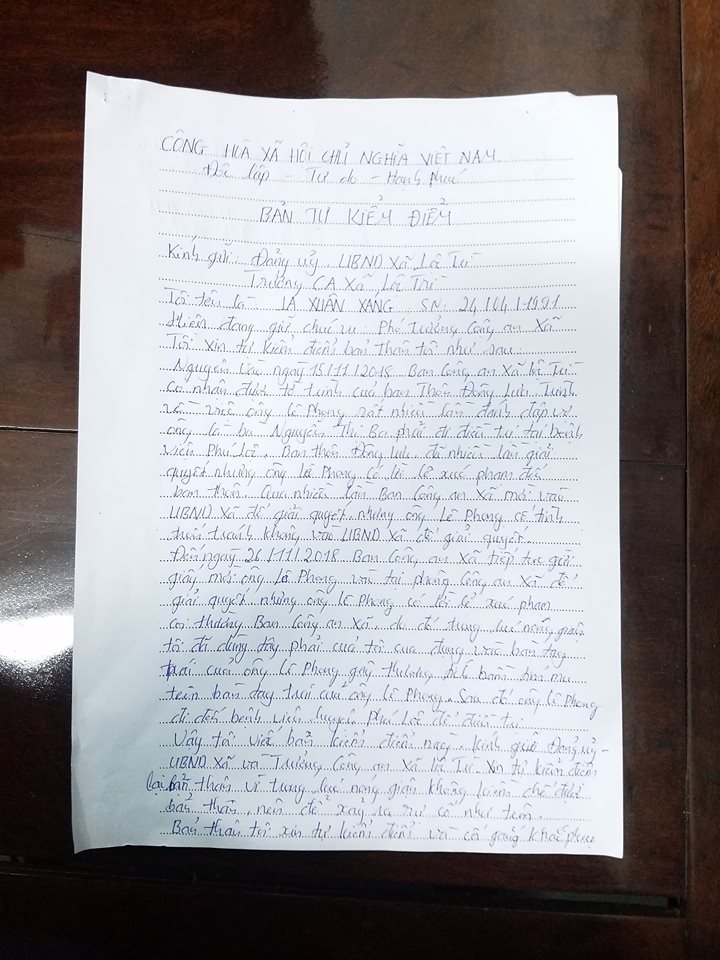 CÔNG HOÀ XÃ HÔI CHỦ NGHĨA VIỆT NAM
Đô lâp - Tự do - Hanh phuc
BẢN TỰ KIỂM ĐIỂM
Kính gửi: Đảng uỷ, UBND Xã Lô
Trưởng CA Xã Lô
Tôi tên là: LA XUÂN XANG, SN: 24/04/1991
Hiên đang giữ chưc vu: Phó Trưởng Công an Xã
Tôi xin tư kiểm điểm bản thân tôi như sau:
Nguyên vào ngày 15/11/2018 Ban Công an Xã Lô
co nhân được tờ trinh cua ban Thôn Đông Lưu, Trinh
về viêc ông Lê Phong rât nhiều lần đanh đâp vơ
ông là bà Nguyễn Thi Ba phải đi điều tri tai bênh
viên Phu Lôc, Ban thôn Đông Lưu đa nhiều lần giải
quyêt nhưng ông Lê Phong co lời lẽ xuc pham đến
ban thôn. Qua nhiều lần Ban Công an Xã mời vào
UBND Xã để giải quyêt, nhưng ông Lê Phong cố tinh
trốn tranh không vào UBND Xã để giải quyêt.
Đến ngày 26/11/2018 Ban Công an Xã tiếp tuc gửi
giấy mời ông Lê Phong vào tai phòng Công an Xã để
giải quyết nhưng ông Lê Phong co lời lẽ xuc pham
coi thương Ban Công an Xã, do đo trong luc nong giân
tôi đa dùng tây phải cua tôi vào bàn tay
trai cuả ông Lê Phong gây thương tich
trên bàn tay trai của ông Lê Phong. Sau đo ông Lê Phong
đi đến bênh viên huyên Phu Lôc để điều tri
Vây tôi viêt bản kiểm điểm này, kinh gửi Đảng uỷ -
UBND Xã và Trưởng Công an Xã Lô Xin tư kiểm điểm
lai bản thân vì trong luc nong giân không kiềm chế được
bản thân, nên để xảy ra sư cố như trên.
Bản thân tôi xin tư kiểm điểm và cố gắng khăc phuc